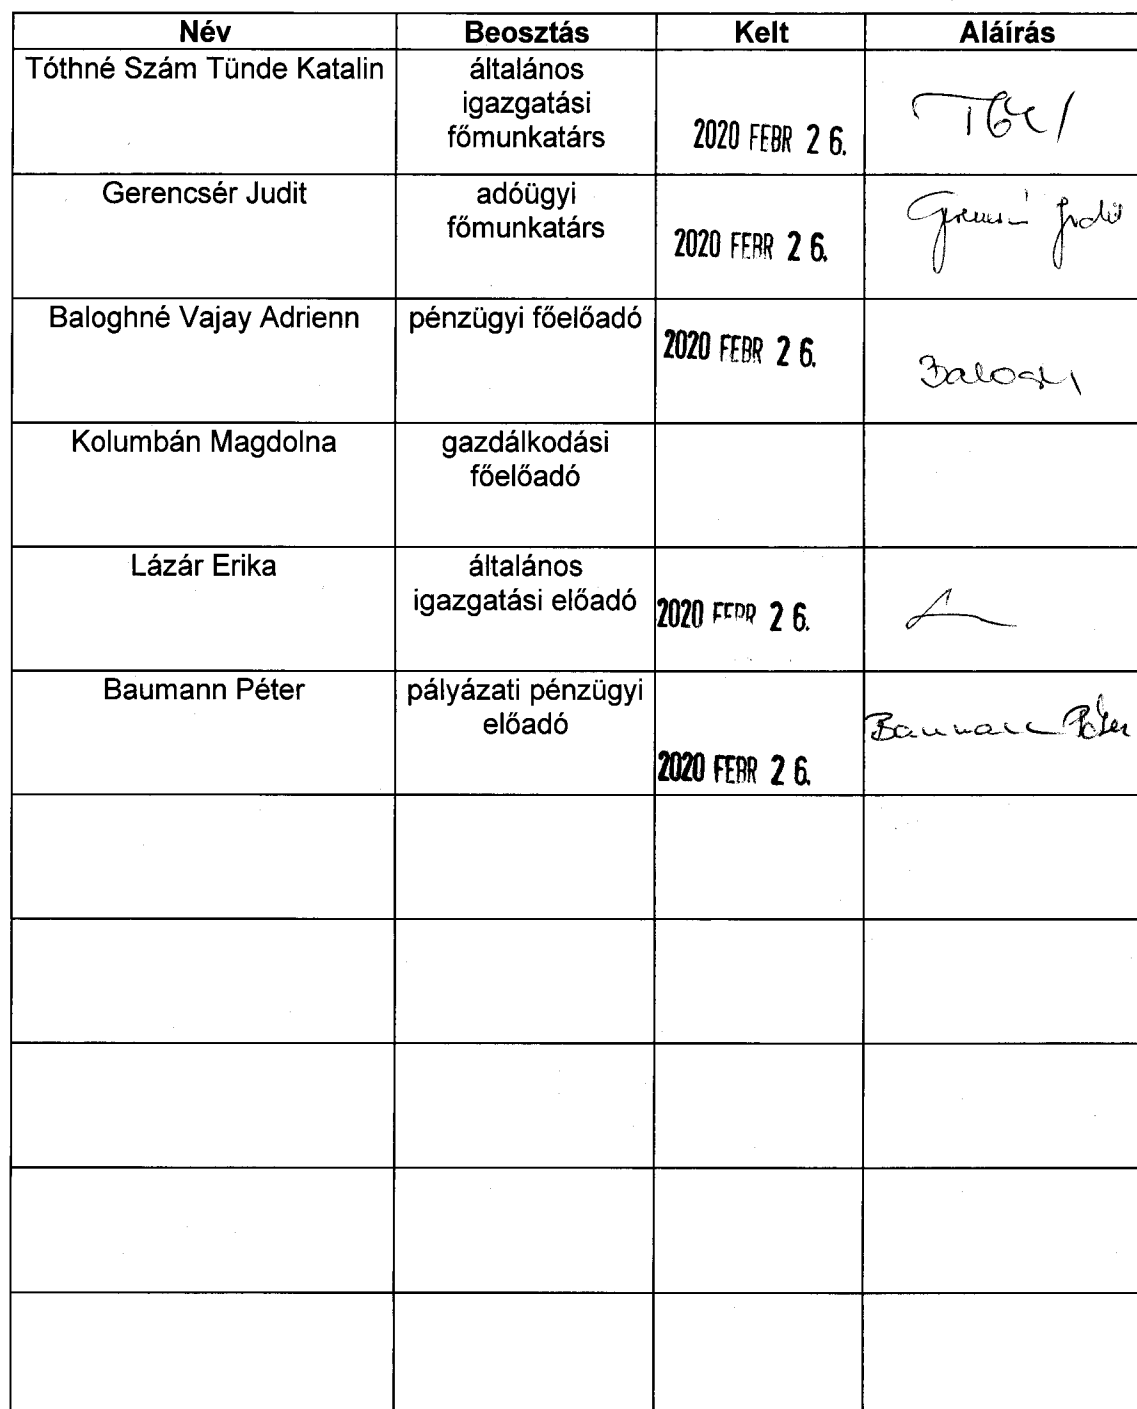 Név Beosztás Kelt Aláírás
Tóthné Szám Tünde Katalin általános
igazgatási
főmunkatárs 2020 FEBR 26.
Gerencsér Judit adóügyi
főmunkatárs 2020 FEBR 26.
Baloghné Vajay Adrienn pénzügyi főelőadó 2020 FEBR 26.
Baloghné
Kolumbán Magdolna gazdálkodási
főelőadó
Lázár Erika általános
igazgatási előadó 2020 FEBR 26.
Baumann Péter pályázati pénzügyi
előadó Baumann Péter
2020 FEBR 26.